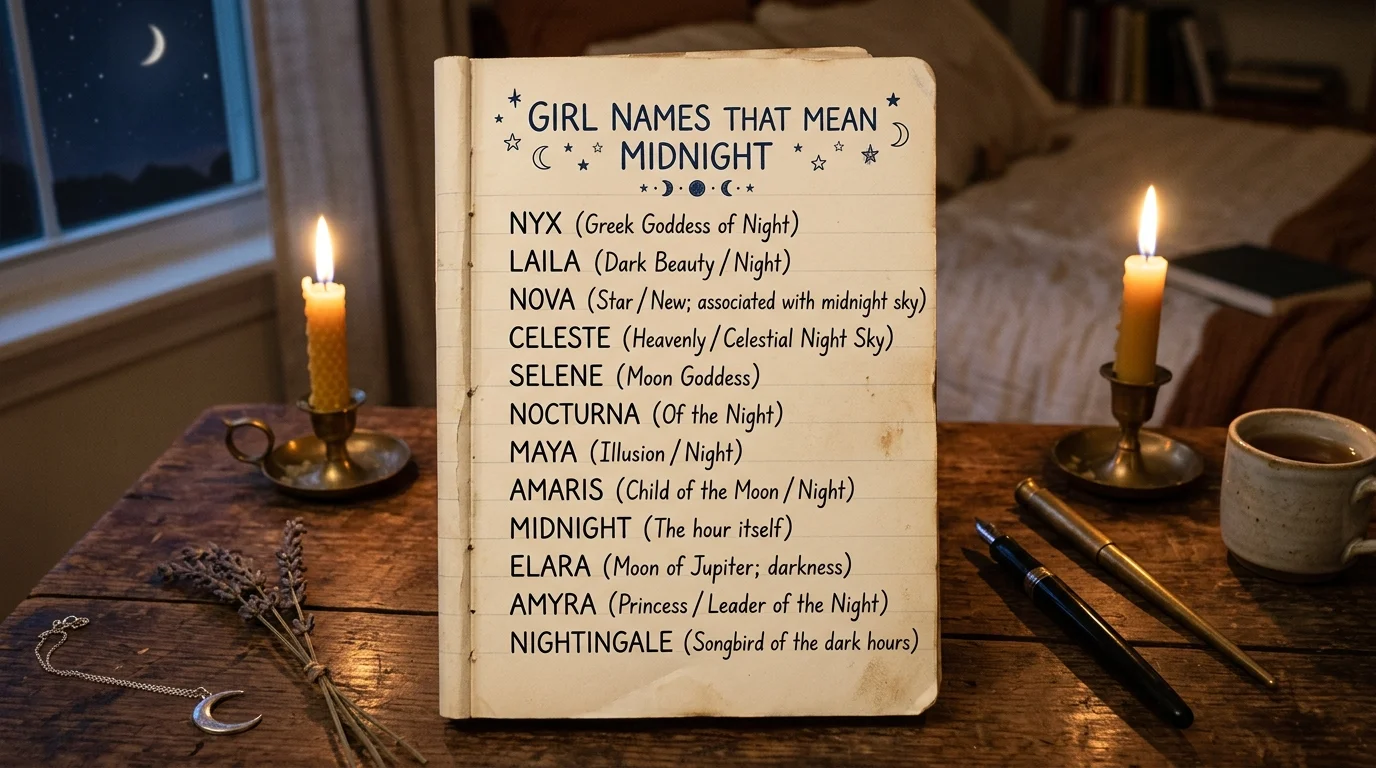 GIRL NAMES THAT MEAN
MIDNIGHT
NYX (Greek Goddess of Night)
LAILA (Dark Beauty / Night)
NOVA (Star / New; associated with midnight sky)
CELESTE (Heavenly / Celestial Night Sky)
SELENE (Moon Goddess)
NOCTURNA (Of the Night)
MAYA (Illusion / Night)
AMARIS (Child of the Moon / Night)
MIDNIGHT (The hour itself)
ELARA (Moon of Jupiter; darkness)
AMYRA (Princess / Leader of the Night)
NIGHTINGALE (Songbird of the dark hours)